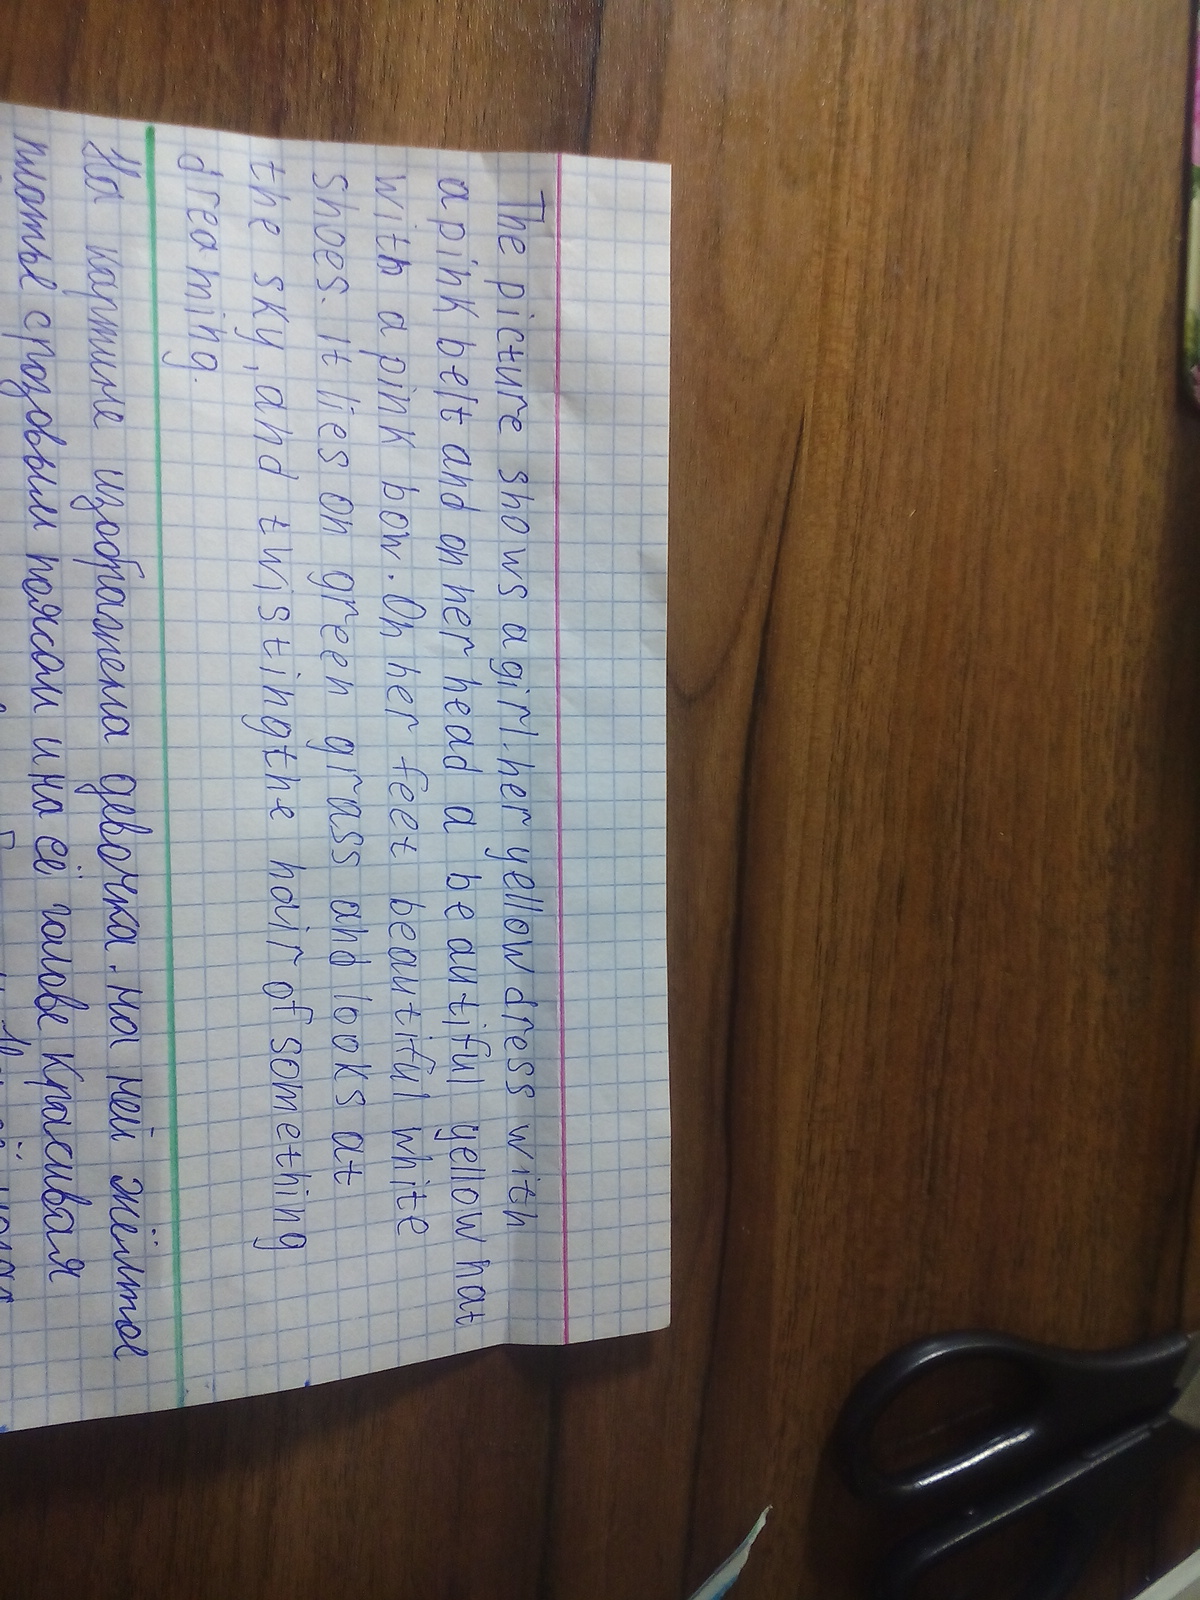 The picture shows a girl. her yellow dress with
a pink belt and on her head a beautiful yellow hat
with a pink bow. On her feet beautiful white
shoes. It lies on green grass and looks at
the sky, and twisting the hair of something
dreaming.
На картине изображена девочка. на ней жёлтое
платье с розовым поясом и на её голове красивая